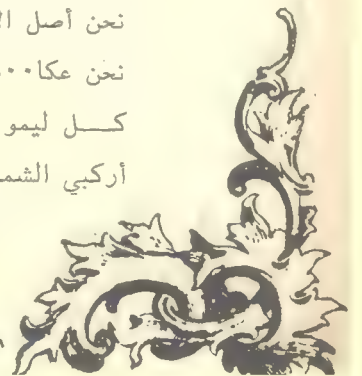 نحن أصل
نحن عكا...
كــل ليمو
أركبي الشم